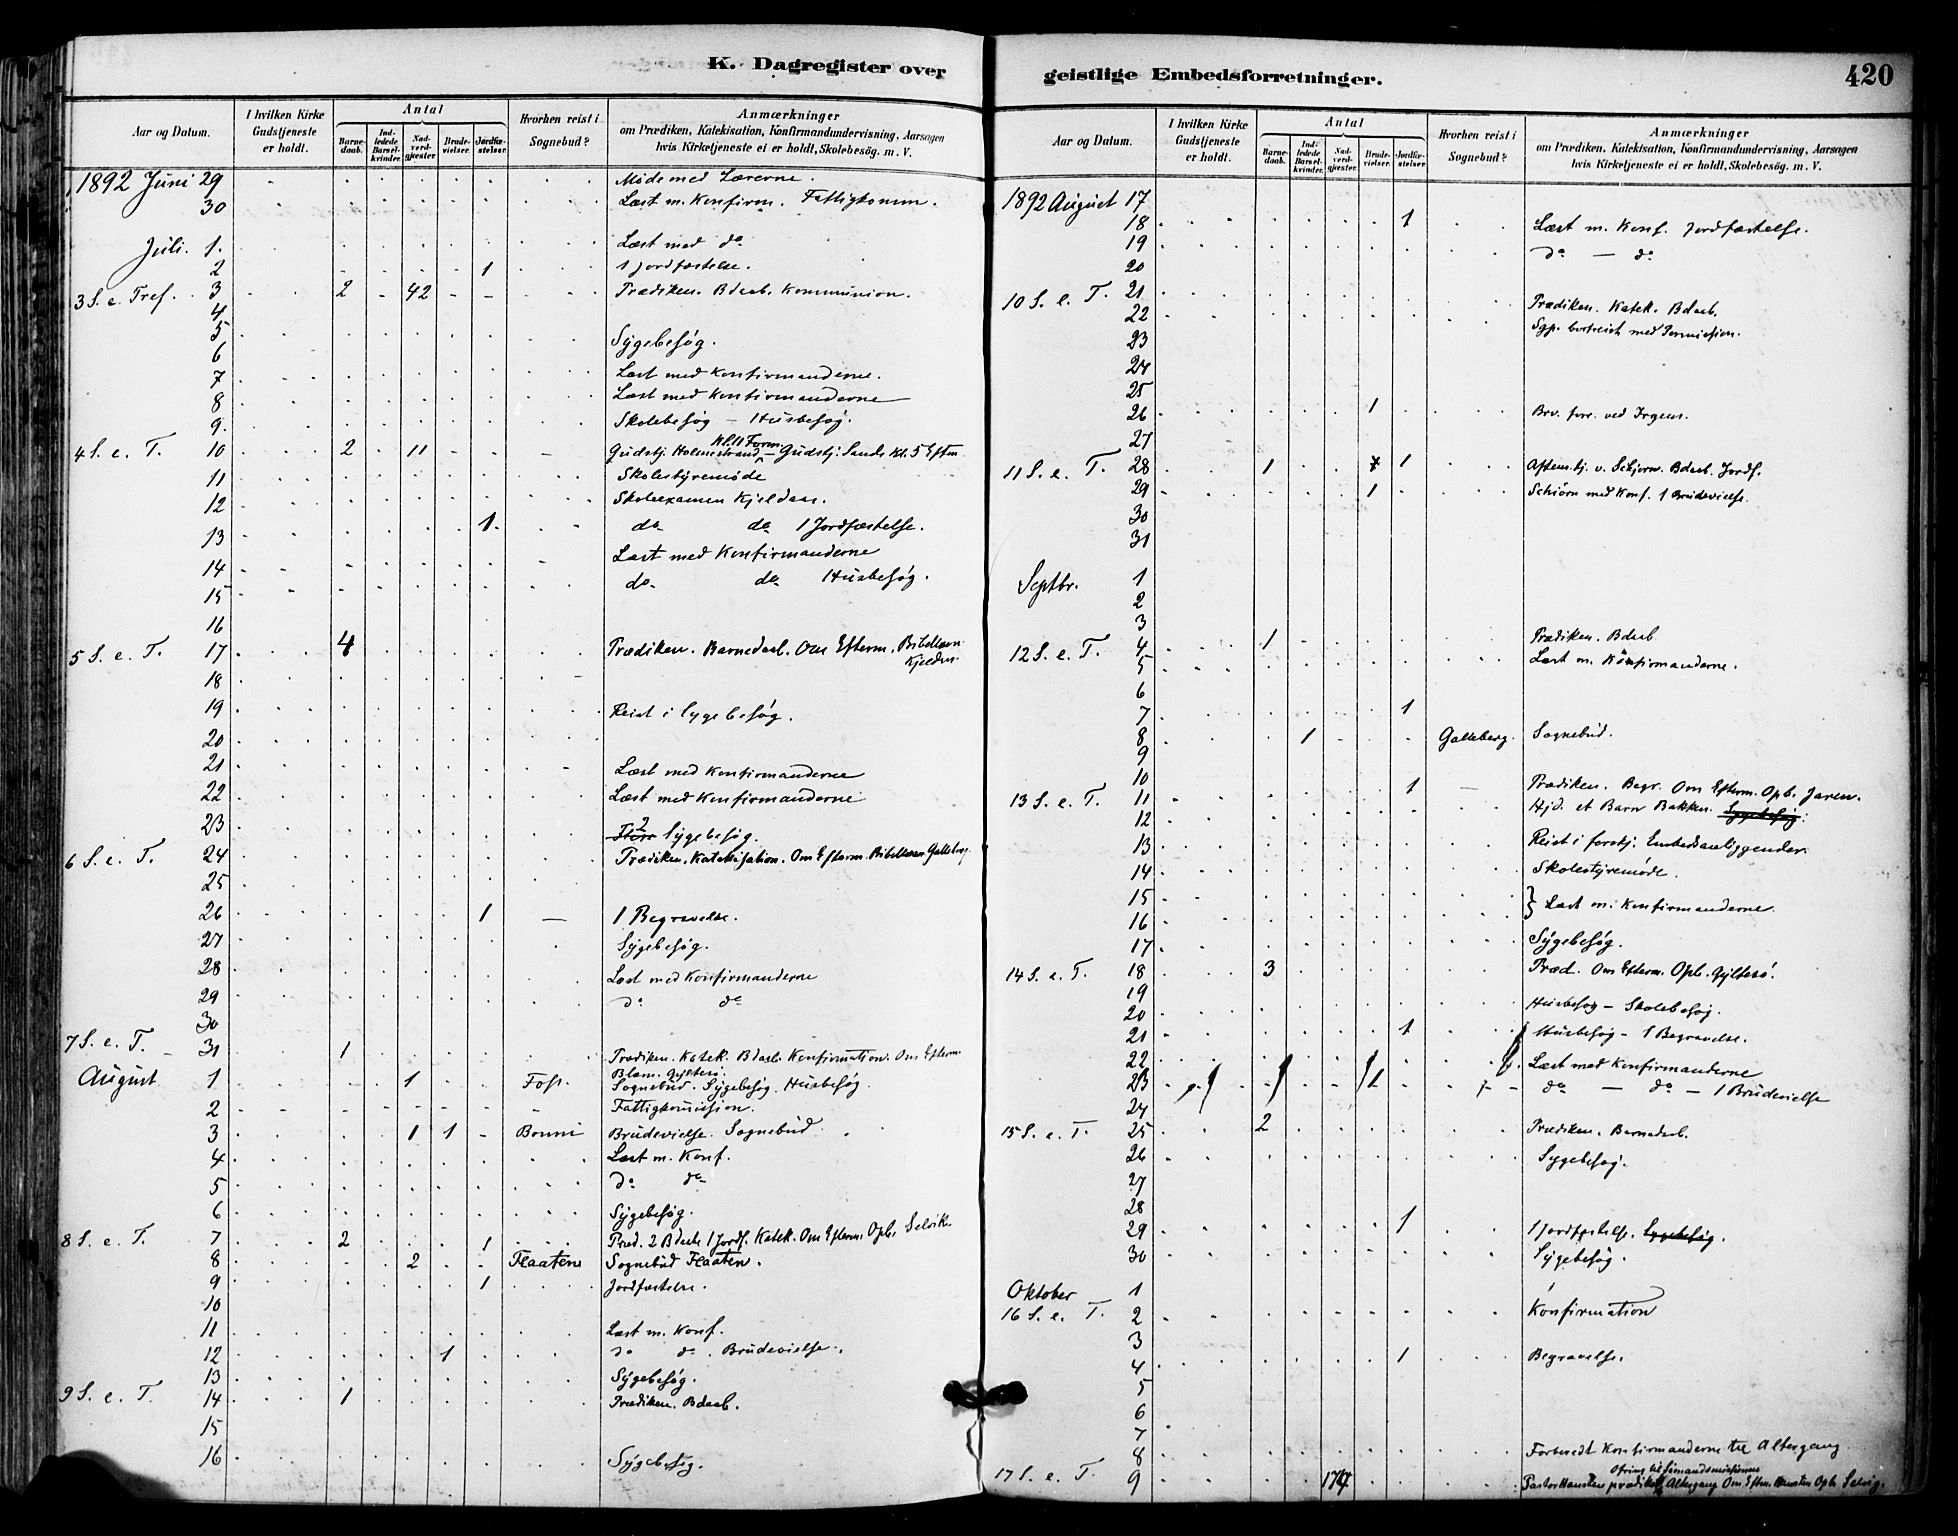 K. Dagregister over
Aar og Datum.
I hvilken Kirke Gudstjeneste er holdt.
Antal
Barnedaab.
Indledede Barselkvinder.
Nadverdgjester.
Brudevielser.
Jordfæstelser.
Hvorhen reist i Sognebud?
Anmærkninger
om Prædiken, Katekisation, Konfirmandundervisning, Aarsagen
hvis Kirketjeneste ei er holdt, Skolebesög. m. V.
1892 Juni 29 Møde med Lærerne.
30 Læst m. Konfirm. Fattigkomm.
Juli. 1. Læst med do
2 1 1 Jordfæstelse.
3 S. e. Tref. 3 2 42 Prædiken. Bdaab. Kommunion.
4
5 Sygebesøg.
6
7 Læst med Konfirmanderne.
8 Læst med Konfirmanderne
9. Skolebesøg – Husbesøg.
4 S. e. T. 10 2 11 Gudstj. Holmestrand Kl. 11 Form. – Gudstj. Sande Kl. 5 Eftm
11 Skolestyremøde
12 Skoleexamen Kjeldaas.
13 1. do do 1 Jordfæstelse.
14 Læst med Konfirmanderne
15 do do Husbesøg.
16
5 S. e. T. 17 4 Prædiken. Barnedaab. Om Efterm. Bibellæsn.
Kjeldaas
18
19 Reist i Sygebesøg.
20
21 Læst med Konfirmanderne
22 Læst med Konfirmanderne
23 2 Sygebesøg.
6 S. e. T. 24 Prædiken. Katekisation. Om Efterm. Bibellæsn. Galleberg
25
26 1 1 Begravelse.
27 Sygebesøg.
28 Læst med Konfirmanderne
29 do do
30
7 S. e. T. 31 1 Prædiken. Katek. Bdaab. Konfirmation. Om Efterm.
August 1 1 Foss. Sognebud. Sygebesøg. Husbesøg.
2 Fattigkomission.
3 1 1 Bonni Brudevielse. Sognebud
4 Læst m. Konf.
5 do do
6 Sygebesøg.
8 S. e. T. 7 2 1 Præd. 2 Bdaab 1 Jordf. Katek. Om Efterm. Opb. Selvik
8 2 Flaatene Sognebud Flaaten.
9 1 Jordfæstelse.
10
11 Læst m. Konf.
12 1 do do. Brudevielse.
13 Sygebesøg.
9 S. e. T. 14 1 Prædiken. Bdaab.
15
16 Sygebesøg.
geistlige Embedsforretninger.
420
Aar og Datum.
I hvilken Kirke Gudstjeneste er holdt.
Antal
Barnedaab.
Indledede Barselkvinder.
Nadverdgjester.
Brudevielser.
Jordfæstelser
Hvorhen reist i Sognebud?
Anmærkninger
om Prædiken, Katekisation, Konfirmandundervisning, Aarsagen
hvis Kirketjeneste ei er holdt, Skolebesög. m. V.
1892 August 17
18 1 Læst m. Konf. Jordfæstelse.
19 do – do
20
10 S. e. T. 21 Prædiken. Katek. Bdaab.
22 Sgp. bortreist med Permission.
23
24
25
26 1 Brv. forr. ved Irgens.
27
11 S. e. T. 28 1 1 Aftenstj. v. Schjørn. Bdaab. Jordf.
29 1 Schiørn med Konf. 1 Brudevielse.
30
31
Septbr. 1
2
3
12 S. e. T. 4 1 Prædiken. Bdaab
5 Læst m. Konfirmanderne.
6
7 1
8 1 Galleberg. Sognebud.
9
10
13 S. e. T. 11 1 Prædiken. Begr. Om Efterm. Opb. Jaren.
12 Hjd. et Barn Bakken. Sygebesøg.
13 Reist i forskj. Embedsanliggender.
14 Skolestyremøde.
15 } Læst m. Konfirmanderne.
16
17 Sygebesøg.
14 S. e. T. 18 3 Præd. Om Efterm. Opb. Gyltesø.
19
20 Husbesøg – Skolebesøg.
21 1 Husbesøg – 1 Begravelse.
22 Læst med Konfirmanderne
23 1 do – do – 1 Brudevielse
24
15 S. e. T. 25 2 Prædiken. Barnedaab.
26 Sygebesøg.
27
28
29 1 1 Jordfæstelse. Sygebesøg.
30 Sygebesøg.
Oktober 1
16 S. e. T. 2 Konfirmation
3
4 1 Begravelse.
5
6
7
8 Forberedt Konfirmanderne til Altergang
17 S. e. T. 9 Pastor Hansten Altergang Om Eftm. Hansten Opb. Selvig.